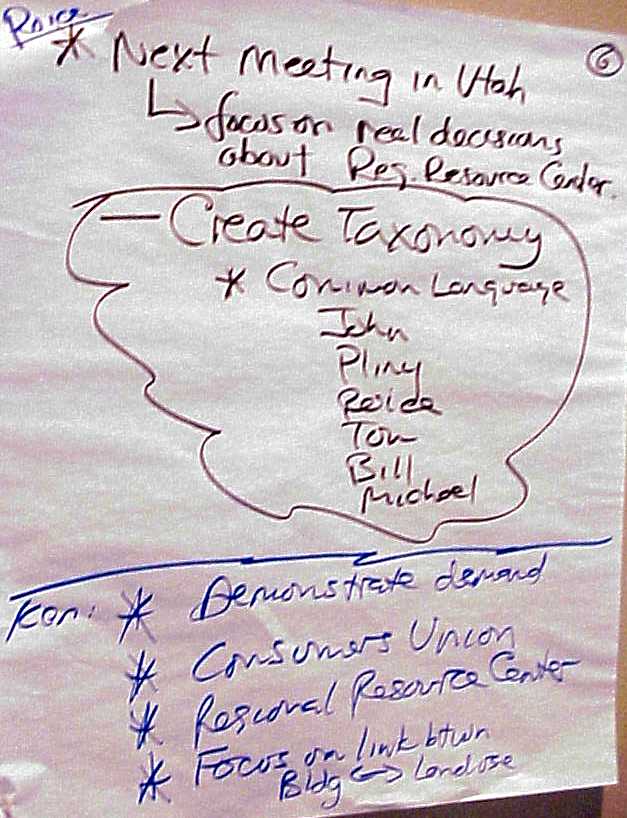 * Next Meeting in Utah
6
↳ focus on real decisions
about Reg. Resource Center.
— Create Taxonomy
* Common Language
John
Pliny
Tom
Bill
Michael
Ken: * Demonstrate demand
* Consumers Union
* Regional Resource Center
* Focus on link btwn
Bldg <-> Land use